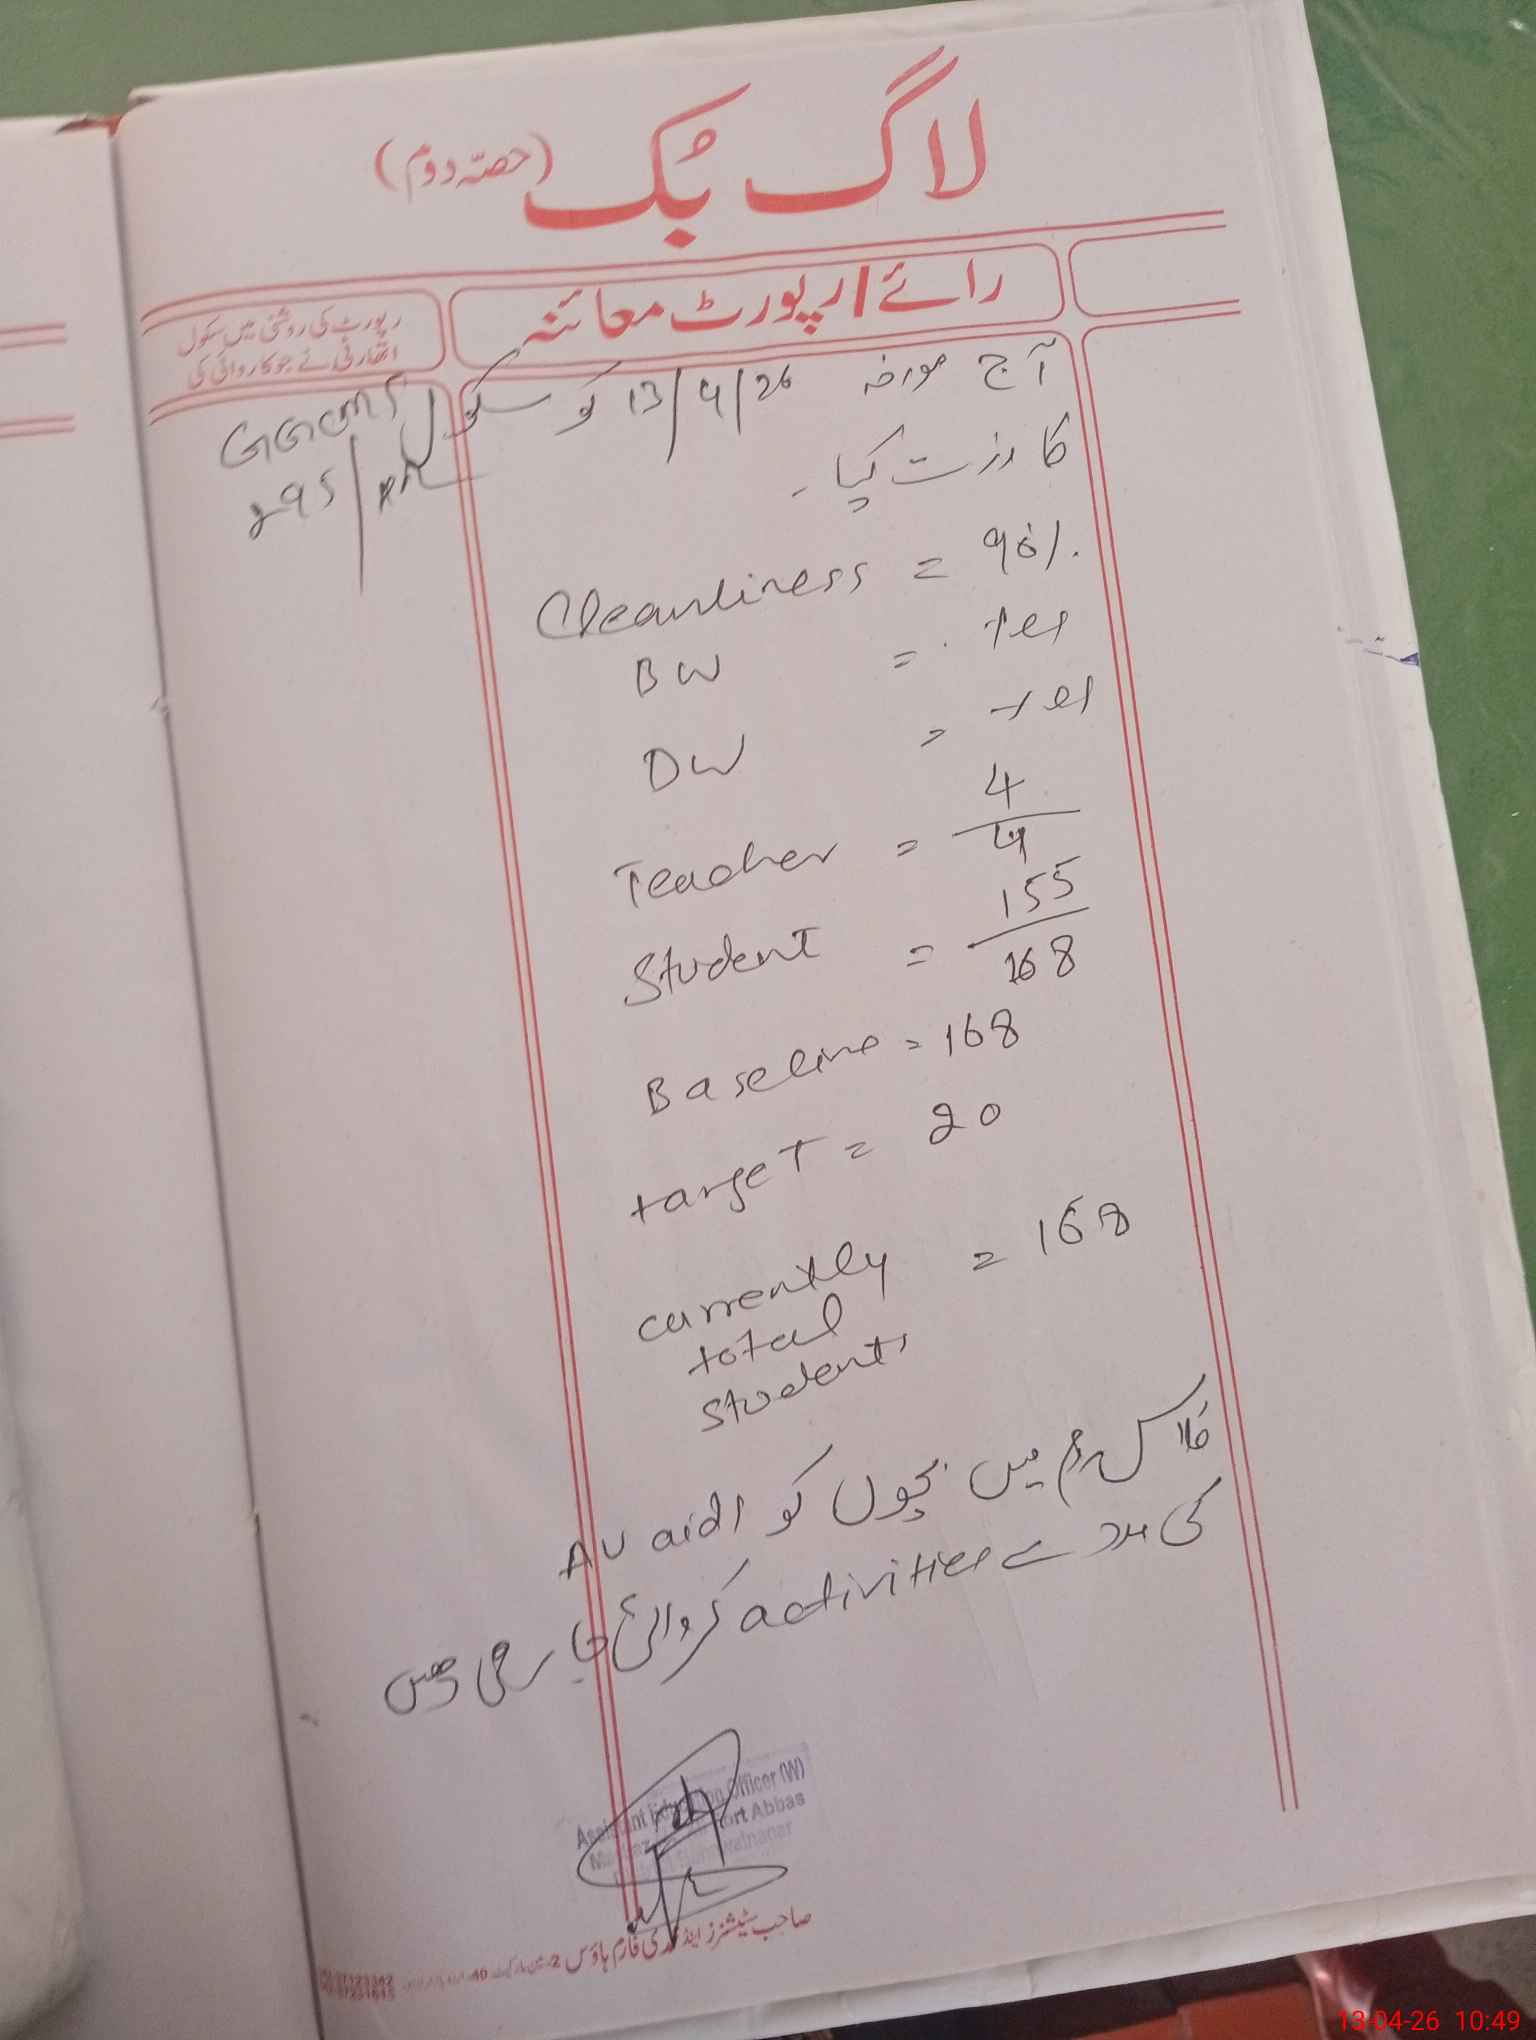 لاگ بُک (حصّہ دوم)
رائے / رپورٹ معائنہ
رپورٹ کی روشنی میں سکول
اتھارٹی نے جو کاروائی کی
آج مورخہ 13/4/26 کو سکول
295/
کا وزٹ کیا۔
Cleanliness = 90%.
BW = Yes
DW = Yes
Teacher = 4/4
Student = 155/168
Baseline = 168
target = 20
currently = 168
total
students
کلاس روم میں بچوں کو AV aids
کی مدد سے activities کروائی جا رہی ہیں
Assistant Education Officer (W)
Fort Abbas
صاحب سٹیشنرز اینڈ فارم ہاؤس
13-04-26 10:49